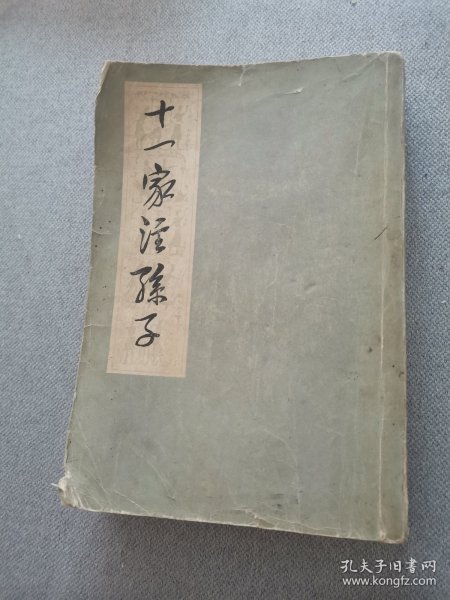 十一家注孙子
孔夫子旧书网
www.kongfz.com